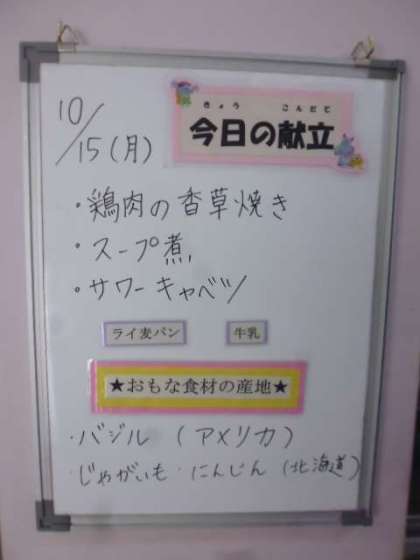 10/15(月)
きょう こんだて
今日の献立
・鶏肉の香草焼き
・スープ煮
・サワーキャベツ
ライ麦パン 牛乳
★おもな食材の産地★
・バジル (アメリカ)
・じゃがいも・にんじん (北海道)